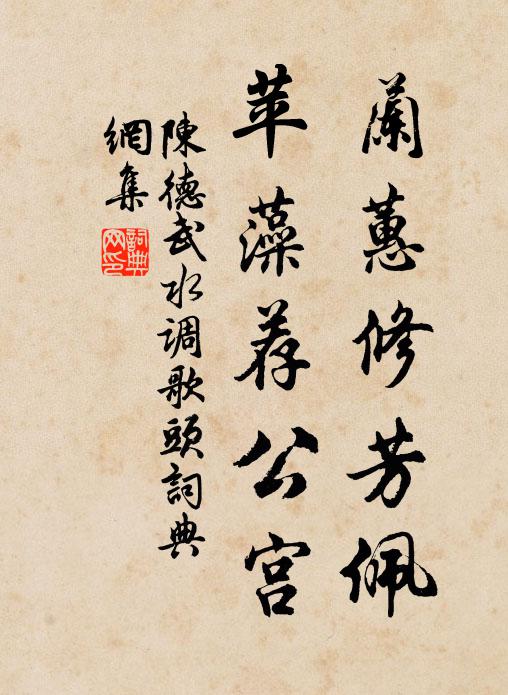 蘭蕙修芳佩
苹藻荐公宫
陳德武水调歌頭詞典
網集
詞典
网印